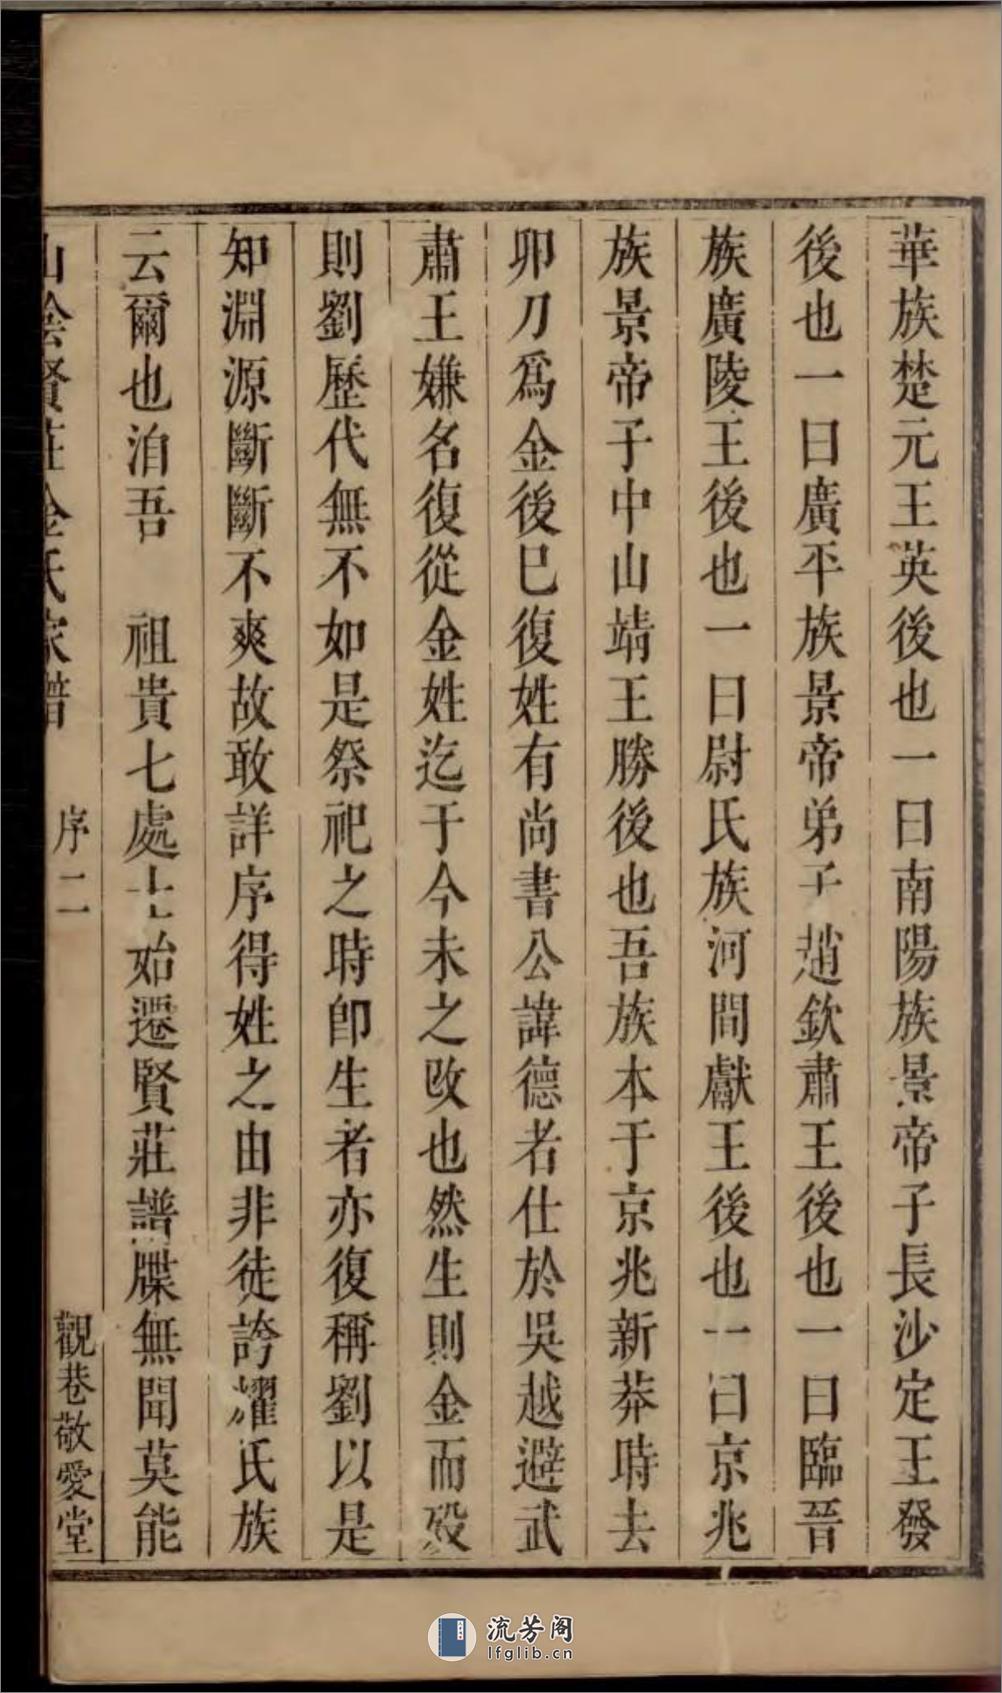 華族楚元王英後也一曰南陽族景帝子長沙定王發
後也一曰廣平族景帝弟子趙欽肅王後也一曰臨晉
族廣陵王後也一曰尉氏族河間獻王後也一曰京兆
族景帝子中山靖王勝後也吾族本于京兆新莽時去
卯刀爲金後巳復姓有尚書公諱德者仕於吳越避武
肅王嫌名復從金姓迄于今未之改也然生則金而歿
則劉歷代無不如是祭祀之時卽生者亦復稱劉以是
知淵源斷斷不爽故敢詳序得姓之由非徒誇耀氏族
云爾也洎吾 祖貴七處士始遷賢莊譜牒無聞莫能
山陰賢莊金氏家譜 序 二 觀巷敬愛堂
流芳阁
lfglib.cn